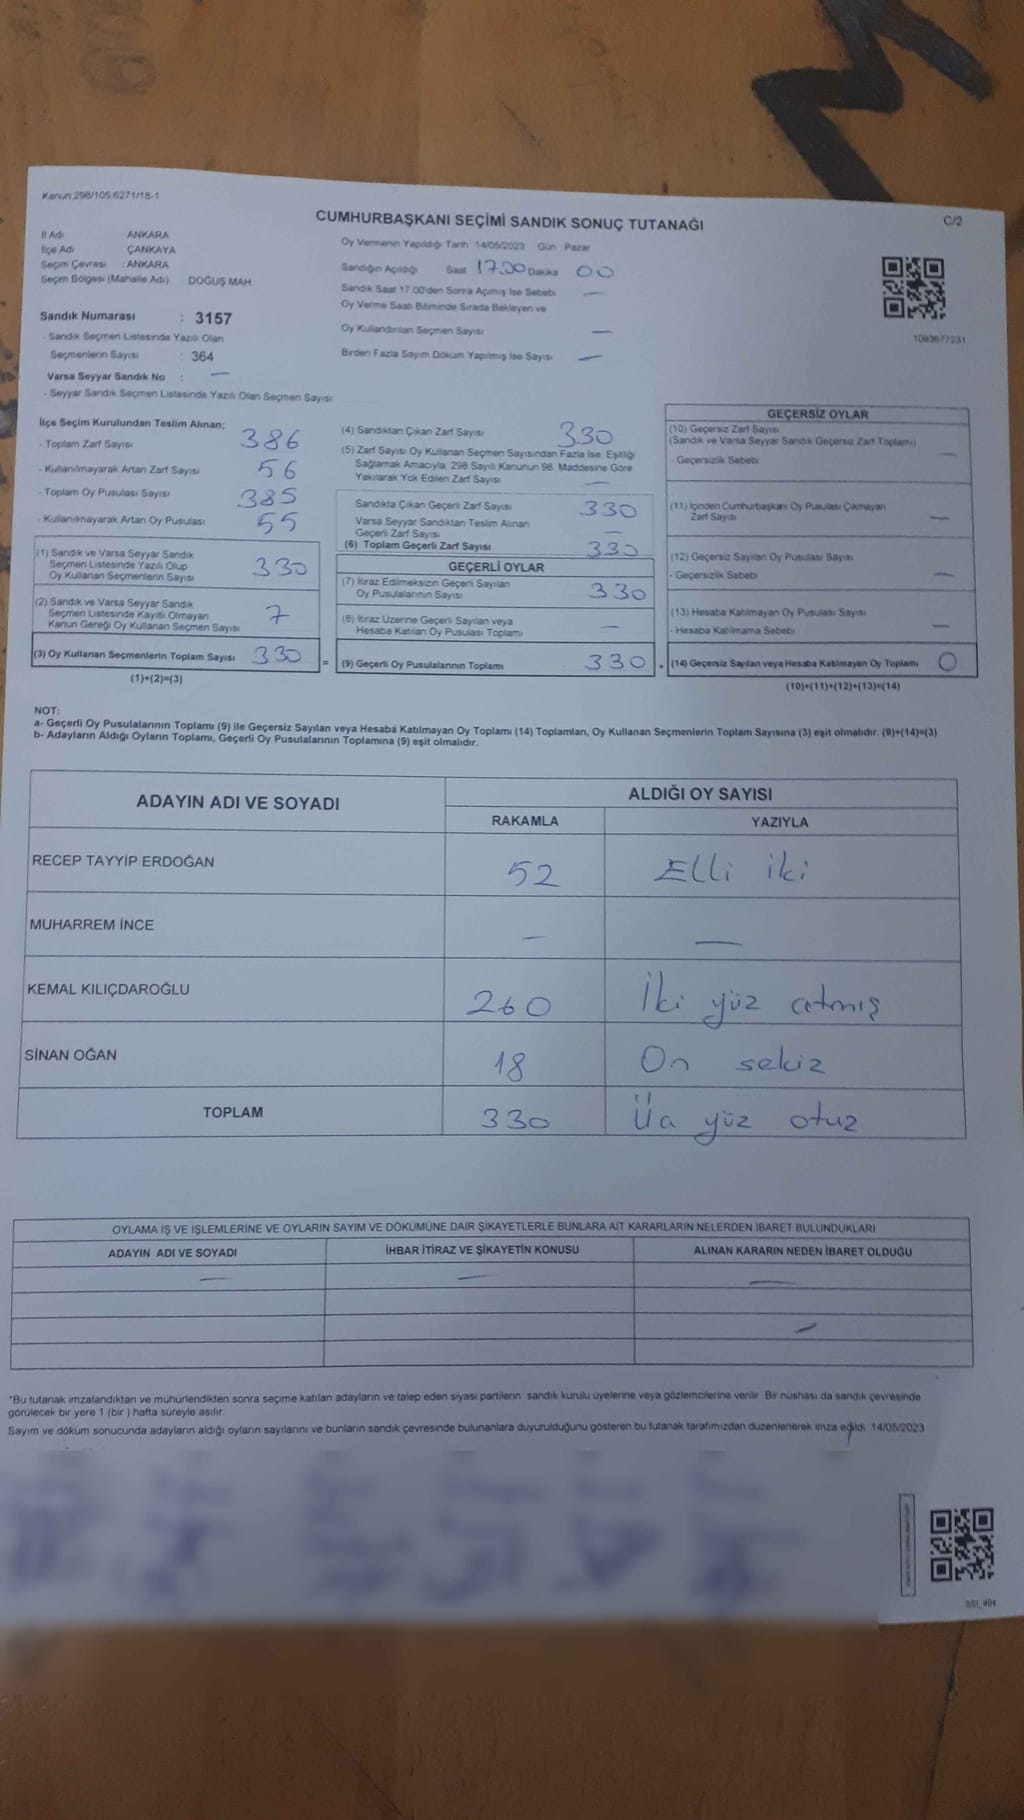 Kanun:298/105,6271/18-1
C/2
CUMHURBAŞKANI SEÇİMİ SANDIK SONUÇ TUTANAĞI
İl Adı ANKARA
İlçe Adı ÇANKAYA
Seçim Çevresi : ANKARA
Seçim Bölgesi (Mahalle Adı) DOĞUŞ MAH
Sandık Numarası : 3157
- Sandık Seçmen Listesinde Yazılı Olan
Seçmenlerin Sayısı : 364
Varsa Seyyar Sandık No : —
- Seyyar Sandık Seçmen Listesinde Yazılı Olan Seçmen Sayısı
Oy Vermenin Yapıldığı Tarih 14/05/2023 Gün Pazar
Sandığın Açıldığı Saat 17.00 Dakika 00
Sandık Saat 17.00'den Sonra Açımış İse Sebebi —
Oy Verme Saati Bitiminde Sırada Bekleyen ve
Oy Kullandırılan Seçmen Sayısı —
Birden Fazla Sayım Döküm Yapılmış İse Sayısı —
1093677231
İlçe Seçim Kurulundan Teslim Alınan;
- Toplam Zarf Sayısı 386
- Kullanılmayarak Artan Zarf Sayısı 56
- Toplam Oy Pusulası Sayısı 385
- Kullanılmayarak Artan Oy Pusulası 55
(1) Sandık ve Varsa Seyyar Sandık
Seçmen Listesinde Yazılı Olup
Oy Kullanan Seçmenlerin Sayısı 330
(2) Sandık ve Varsa Seyyar Sandık
Seçmen Listesinde Kayıtlı Olmayan
Kanun Gereği Oy Kullanan Seçmen Sayısı 7
(3) Oy Kullanan Seçmenlerin Toplam Sayısı 330
(1)+(2)=(3)
(4) Sandıktan Çıkan Zarf Sayısı 330
(5) Zarf Sayısı Oy Kullanan Seçmen Sayısından Fazla İse Eşitliği
Sağlamak Amacıyla, 298 Sayılı Kanunun 98. Maddesine Göre
Yakılarak Yok Edilen Zarf Sayısı —
Sandıkta Çıkan Geçerli Zarf Sayısı 330
Varsa Seyyar Sandıktan Teslim Alınan
Geçerli Zarf Sayısı —
(6) Toplam Geçerli Zarf Sayısı 330
GEÇERLİ OYLAR
(7) İtiraz Edilmeksizin Geçerli Sayılan
Oy Pusulalarının Sayısı 330
(8) İtiraz Üzerine Geçerli Sayılan veya
Hesaba Katılan Oy Pusulası Toplamı —
= (9) Geçerli Oy Pusulalarının Toplamı 330
GEÇERSİZ OYLAR
(10) Geçersiz Zarf Sayısı
(Sandık ve Varsa Seyyar Sandık Geçersiz Zarf Toplamı) —
- Geçersizlik Sebebi
(11) İçinden Cumhurbaşkanı Oy Pusulası Çıkmayan
Zarf Sayısı —
(12) Geçersiz Sayılan Oy Pusulası Sayısı
- Geçersizlik Sebebi —
(13) Hesaba Katılmayan Oy Pusulası Sayısı
- Hesaba Katılmama Sebebi —
+ (14) Geçersiz Sayılan veya Hesaba Katılmayan Oy Toplamı 0
(10)+(11)+(12)+(13)=(14)
NOT:
a- Geçerli Oy Pusulalarının Toplamı (9) ile Geçersiz Sayılan veya Hesaba Katılmayan Oy Toplamı (14) Toplamları, Oy Kullanan Seçmenlerin Toplam Sayısına (3) eşit olmalıdır. (9)+(14)=(3)
b- Adayların Aldığı Oyların Toplamı, Geçerli Oy Pusulalarının Toplamına (9) eşit olmalıdır.
ADAYIN ADI VE SOYADI ALDIĞI OY SAYISI
RAKAMLA YAZIYLA
RECEP TAYYİP ERDOĞAN 52 Elli iki
MUHARREM İNCE — —
KEMAL KILIÇDAROĞLU 260 İki yüz atmış
SİNAN OĞAN 18 On sekiz
TOPLAM 330 Üç yüz otuz
OYLAMA İŞ VE İŞLEMLERİNE VE OYLARIN SAYIM VE DÖKÜMÜNE DAİR ŞİKAYETLERLE BUNLARA AİT KARARLARIN NELERDEN İBARET BULUNDUKLARI
ADAYIN ADI VE SOYADI İHBAR İTİRAZ VE ŞİKAYETİN KONUSU ALINAN KARARIN NEDEN İBARET OLDUĞU
— — —
—
*Bu tutanak imzalandıktan ve mühürlendikten sonra seçime katılan adayların ve talep eden siyasi partilerin sandık kurulu üyelerine veya gözlemcilerine verilir. Bir nüshası da sandık çevresinde
görülecek bir yere 1 (bir ) hafta süreyle asılır.
Sayım ve döküm sonucunda adayların aldığı oyların sayılarını ve bunların sandık çevresinde bulunanlara duyurulduğunu gösteren bu tutanak tarafımızdan düzenlenerek imza edildi 14/05/2023
SSI_404